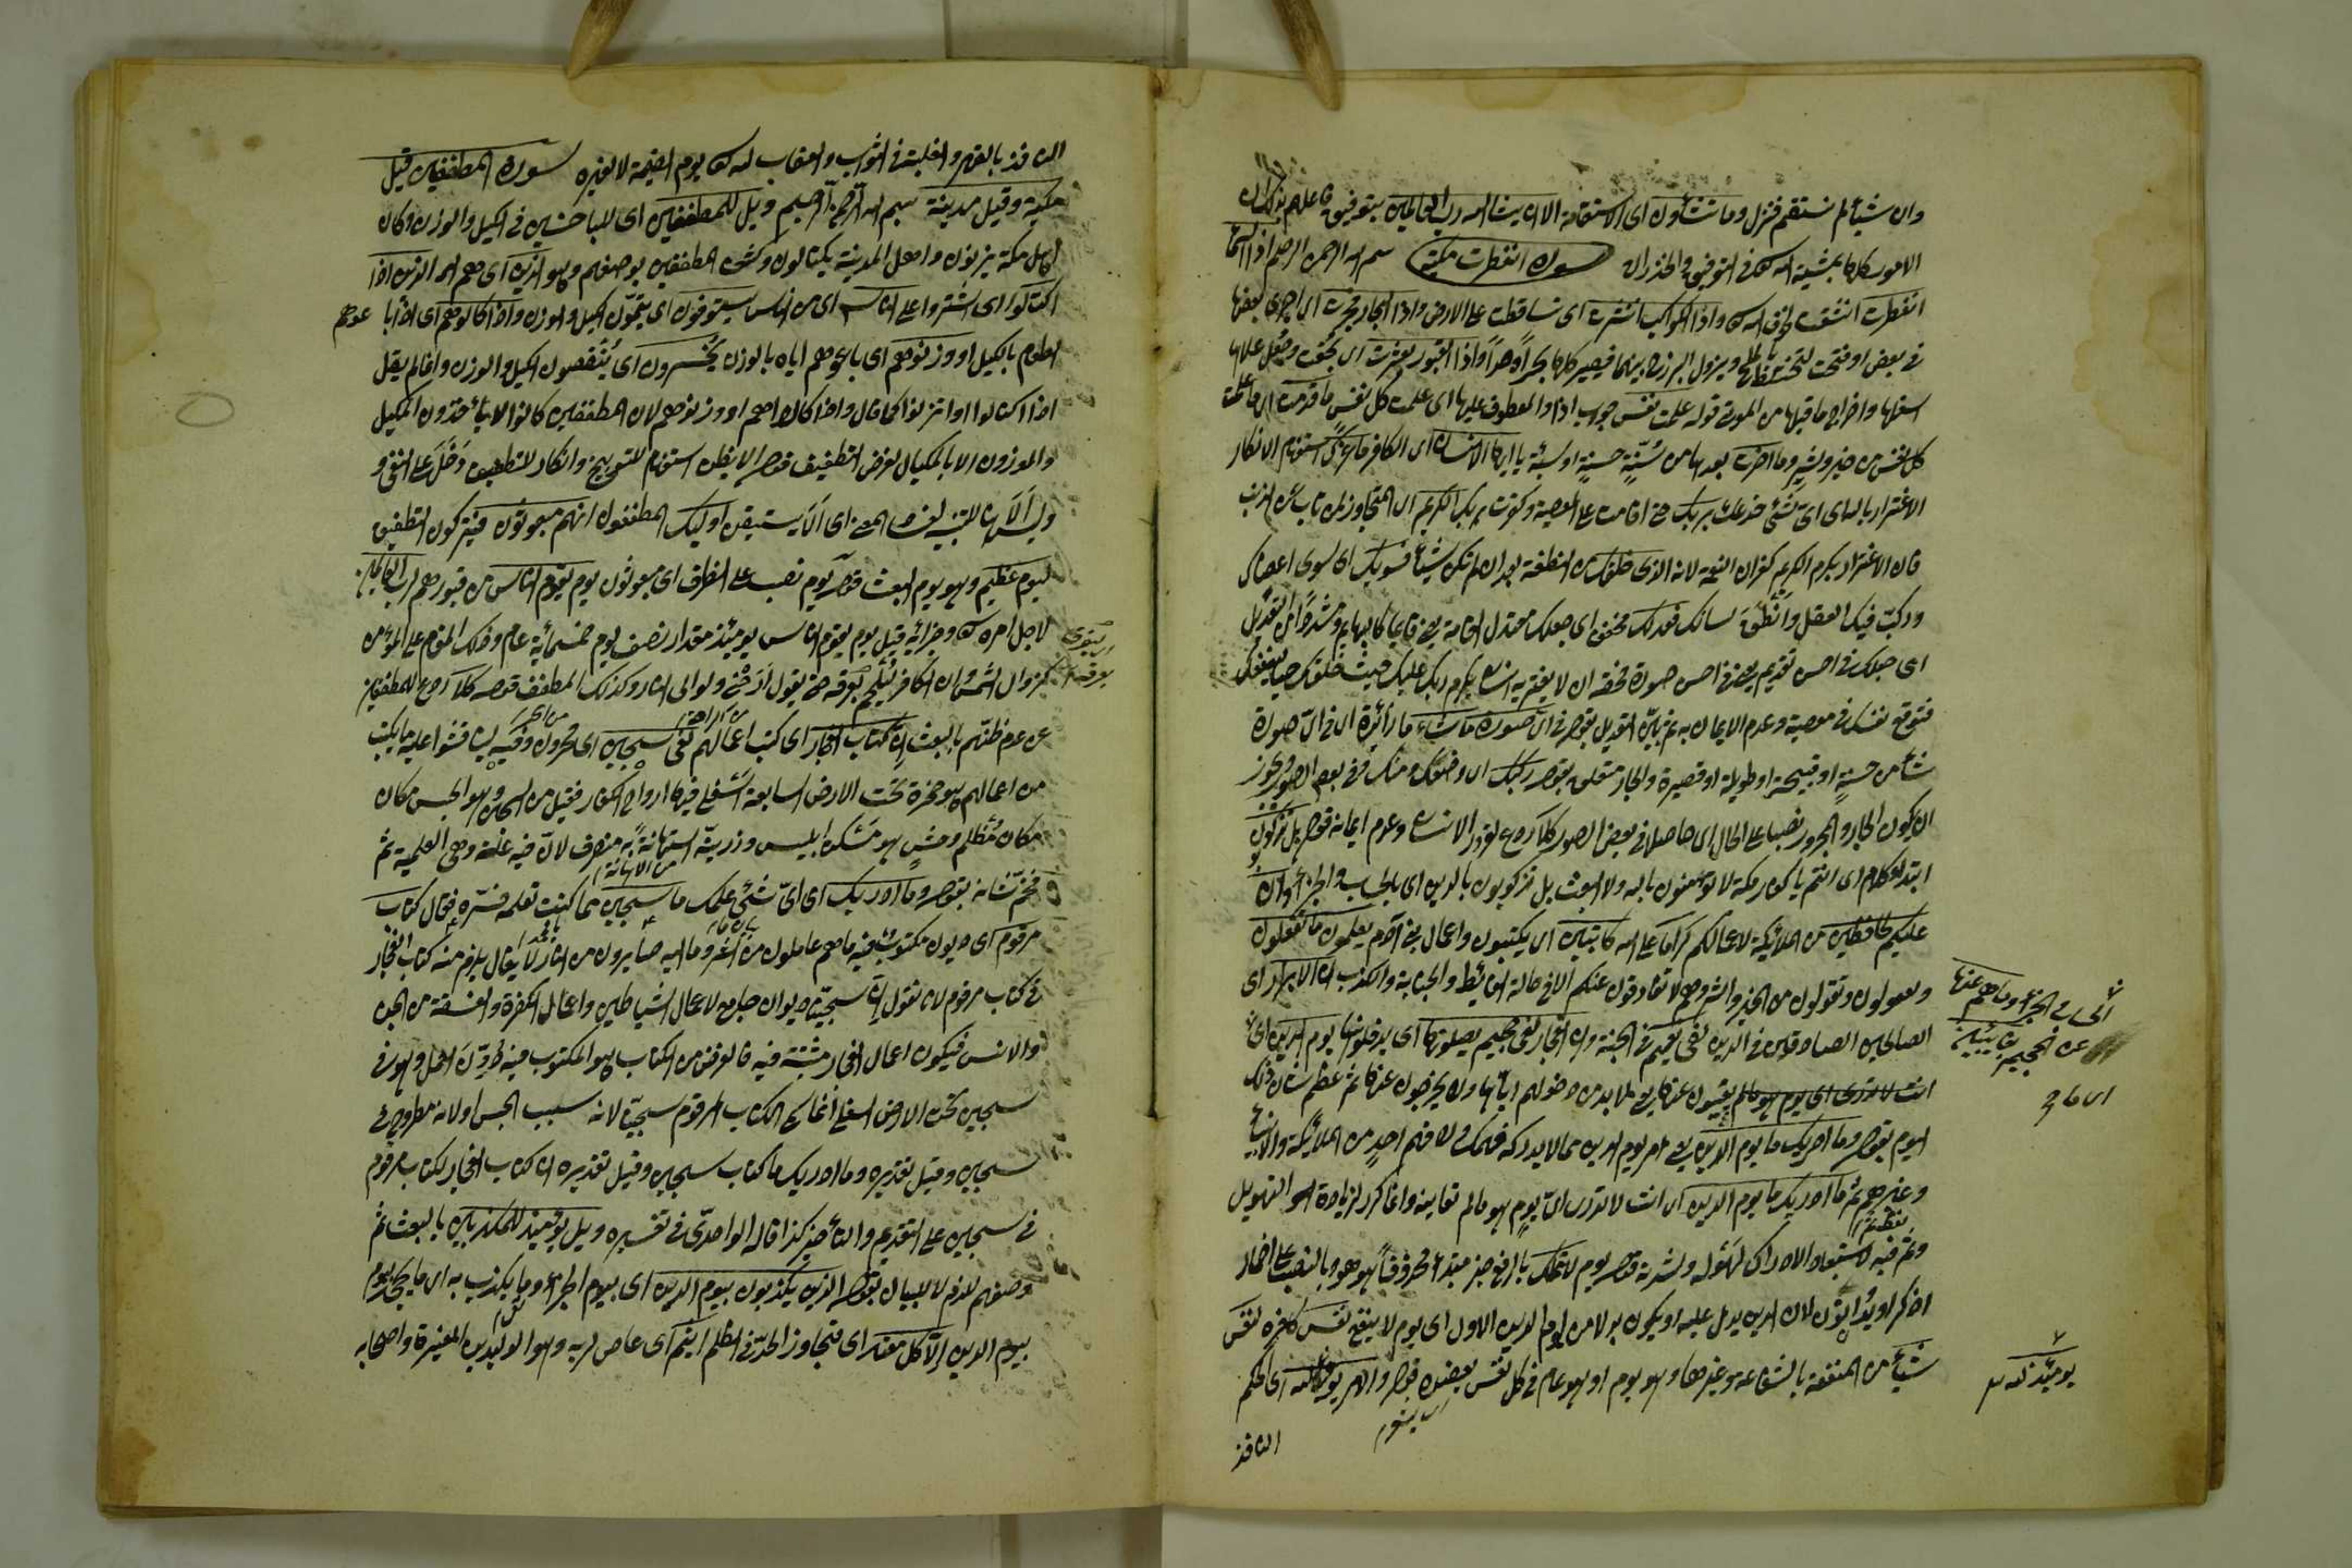 وان شيأ لم نستقم فنزل وما تشاؤن اى الاستقامة الا ان يشاء الله رب العالمين بتوفيق فاعلم بذلك ان
الامور كلها بمشية الله تعالى فى التوفيق والخذلان سورة انفطرت مكية بسم الله الرحمن الرحيم اذا السماء
انفطرت انشقت واذا الكواكب انتثرت اى تساقطت على الارض واذا البحار فجرت اى اجرى بعضها
فى بعض او فتحت ويزول البرزخ بينهما فيصير كلها بحرا واحدا واذا القبور بعثرت اى بحثت وجعل اعلاها
اسفلها واخراج ما فيها من الموتى قوله علمت نفس جواب اذا والمعطوف عليها اى علمت كل نفس ما قدمت اى ما عملت
كل نفس من خير وشر وما اخرت بعدها من سنة حسنة او سيئة يا ايها الانسان اى الكافر ما غرك استفهام لانكار
الاغترار بالله اى اى شئ خدعك بربك حتى اقامت على المعصية وكفرت بربك الكريم اى المتجاوز لمن تاب من الذنب
فان الاغترار بكرم الكريم كفران النعمة لانه الذى خلقك من النطفة بعد ان لم تكن شيأ فسويك اى سوى اعضاءك
وركب فيك العقل وانطق لسانك فعدلك مخففا اى جعلك معتدل القامة يعنى قائما لا كالبهائم ومشددا من التعديل
اى جعلك فى احسن تقويم يعنى فى احسن صورة فحقه ان لا يغتر به انسان بكرم ربك عليك حيث خلقك حيا لينفعك
فتوقع نفسك فى معصية وعدم الايمان به ثم بين التعديل بقوله فى اى صورة ما شاء ما زائدة اى فى اى صورة
شاء من حسنة او قبيحة او طويلة او قصيرة والجار متعلق بقوله ركبك اى وضعك ومنك فى بعض الصور ويجوز
ان يكون الجار والمجرور نصبا على الحال اى حاصلا فى بعض الصور كلا ردع لغرور الانسان وعدم ايمانه قوله بل تكذبون
ابتداء كلام اى انتم يا كفار مكة لا تؤمنون بالله ولا البعث بل تكذبون بالدين اى بالحساب والجزاء وان
عليكم لحافظين من الملائكة لاعمالكم كراما على الله كاتبين اى يكتبون واعمال بنى آدم يعلمون ما تفعلون
وتعملون وتقولون من الخير والشر وهم لا تفارقون عنكم الا فى حالة الغائط والجنابة والكذب ان الابرار اى
الصالحين الصادقين فى الدين لفى نعيم فى الجنة وان الفجار لفى جحيم يصلونها اى يدخلونها يوم الدين اى
الحساب والجزاء وما هم عنها
عن الجحيم بغائبين
انت لا تدرى اى يوم هو ما لم يغيبون عنها يعنى لا بد من دخولهم اياها ولا يخرجون عنها ثم عظم شان ذلك
اى ما هم
اليوم بقوله وما ادريك ما يوم الدين يعنى امر يوم الدين مما لا يدركه فهمك ولا فهم احد من الملائكة والانبياء
وغيرهم ثم ما ادريك ما يوم الدين اى انت لا تدرى اى يوم هو ما لم تعاينه وانما كرر لزيادة التهويل
وثم فيه لاستبعاد الادراك لهوله وشدته قوله يوم لا تملك بالرفع خبر مبتدأ محذوف اى هو وبالنصب على اضمار
اذكر او يدانون لان الدين يدل عليه او يكون بدلا من يوم الدين الاول اى يوم لا ينفع نفس كافرة لنفس
شيأ من المنفعة بالشفاعة وغيرها وهو يوم او هو عام فى كل نفس قوله والامر يومئذ لله اى الحكم
يومئذ لله
النافذ
النافذ بالقهر والغلبة فى الثواب والعقاب لله تعالى يوم القيمة لا لغيره سورة المطففين قيل
مكية وقيل مدينة بسم الله الرحمن الرحيم ويل للمطففين اى للباخسين فى الكيل والوزن وكان
اهل مكة يزنون واهل المدينة يكتالون المطففين بوصفهم وهو الذين اى هم الذين اذا
اكتالوا اى اشتروا على الناس اى من الناس يستوفون اى يتمون الكيل والوزن واذا كالوهم اى اذا باعوهم
الطعام بالكيل او وزنوهم اى باعوهم اياه بالوزن يخسرون اى ينقصون الكيل والوزن وانما لم يقل
اذا اكتالوا او اتزنوا كما قال واذا كالوهم او وزنوهم لان المطففين كانوا لا يأخذون المكيل
والموزون الا بالمكيال لغرض التطفيف قوله الا يظن استفهام للتوبيخ وانكار للتطفيف دخل على النفى و
وليس الا هنا للتنبيه المعنى اى الا يستيقن اوليك المطففون انهم مبعوثون فيتركون التطفيف
ليوم عظيم وهو يوم البعث قوله يوم نصب على الظرف اى مبعوثون يوم يقوم الناس من قبورهم لرب العالمين
لاجل امره تعالى وجزائه قيل يوم يقوم الناس يومئذ مقدار نصف يوم خمسمائة عام وذلك المقام على المؤمن
كزوال الشمس ان الكافر ليلجم بعرقه حتى يقول ارحنى ولو الى النار وكذلك المطفف قوله كلا ردع للمطففين
عن عدم ظنهم بالبعث ان كتاب الفجار اى كتب اعمالهم لفى سجين اى محزون وفيه ما يكتب
من اعمالهم وهو صخرة تحت الارض السابعة السفلى فيها ارواح الكفار فعيل من السجن وهو الحبس مكان
مكان مظلم وحش هو مسكن ابليس وذريته استهانة به منصرف لان فيه علة وهى العلمية ثم
فخم شانه بقوله وما ادريك اى اى شئ علمك ما سجين مما كنت تعلمه فسره فقال كتاب
مرقوم اى ديوان مكتوب فيه ما هم عاملون من الشر وما اليه صايرون من النار لا يقال يلزم منه كتاب الفجار
فى كتاب مرقوم لانا نقول ان سجينا ديوان جامع لاعمال الشياطين واعمال الكفرة والفسقة من الجن
والانس فيكون اعمال الفجار مثبتة فيه فالغرض من الكتاب هو المكتوب فيه وهو فى
سجين تحت الارض السفلى انما الكتاب المرقوم سجينا لانه سبب الحبس او لانه مطروح فى
سجين وقيل تقديره وما ادريك ما كتاب سجين وقيل تقديره ان كتاب الفجار لكتاب مرقوم
فى سجين على التقديم والتأخير كذا قاله الواحدى فى تفسيره ويل يومئذ للمكذبين بالبعث ثم
وصفهم للذم لا للبيان بقوله الذين يكذبون بيوم الدين اى بيوم الجزاء وما يكذب به
بيوم الدين الا كل معتد اى متجاوز الحد فى الظلم اثيم اى عاص لربه وهو الوليد بن المغيرة واصحابه